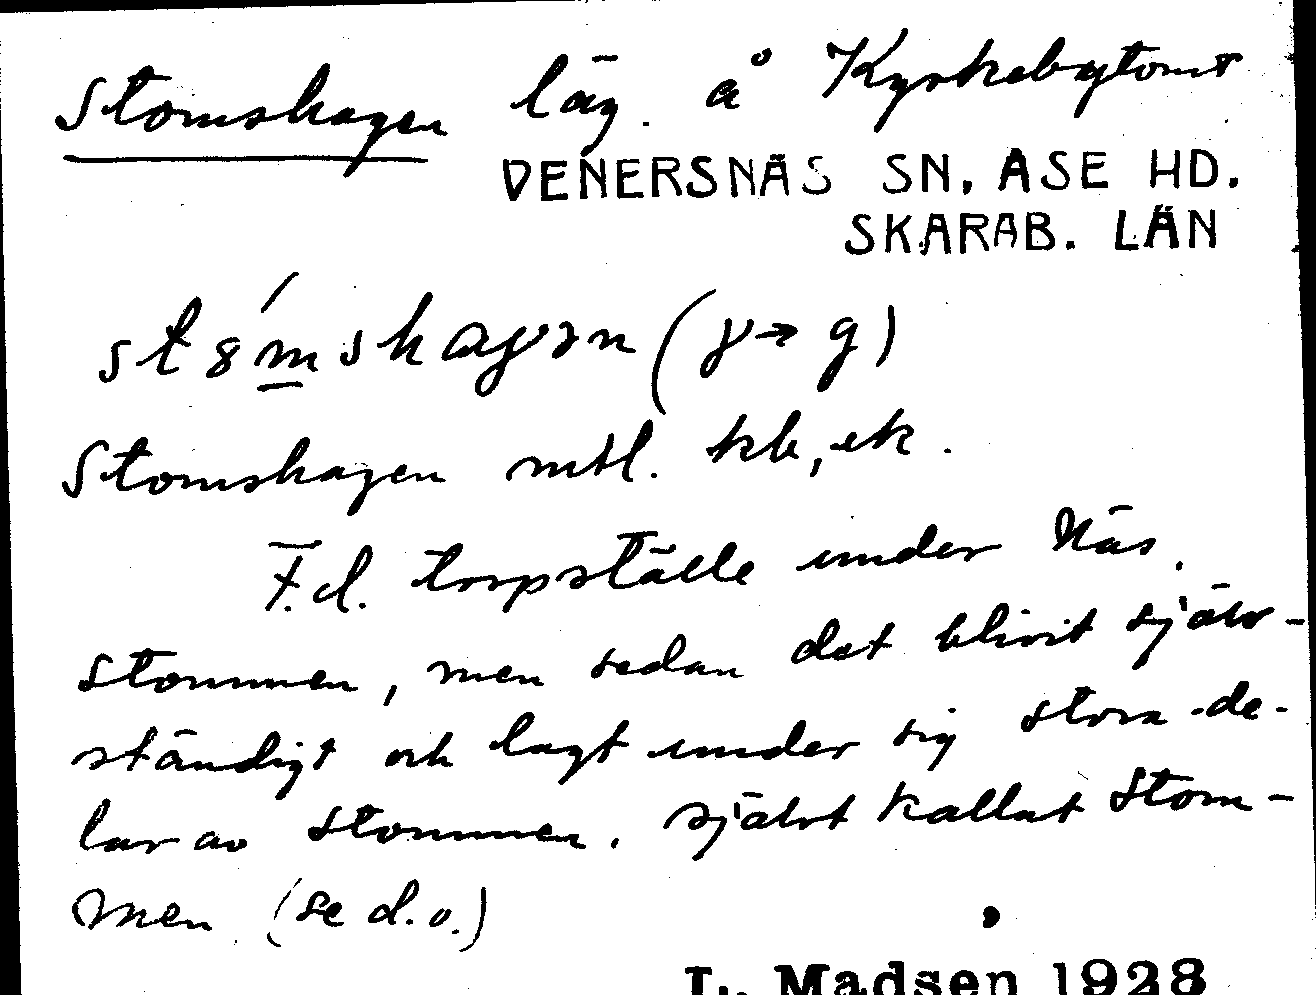 Stomshagen läg. å Kyrkebytomt
VENERSNÄS SN. ASE HD.
SKARAB. LÄN
Stomshagen mtl. kb, ek.
F.d. torpställe under Näs.
stommen, men sedan det blivit själv-
ständigt och lagt under sig stora de-
lar av stommen, självt kallat Stom-
men (se d.o.)
L. Madsen 1928